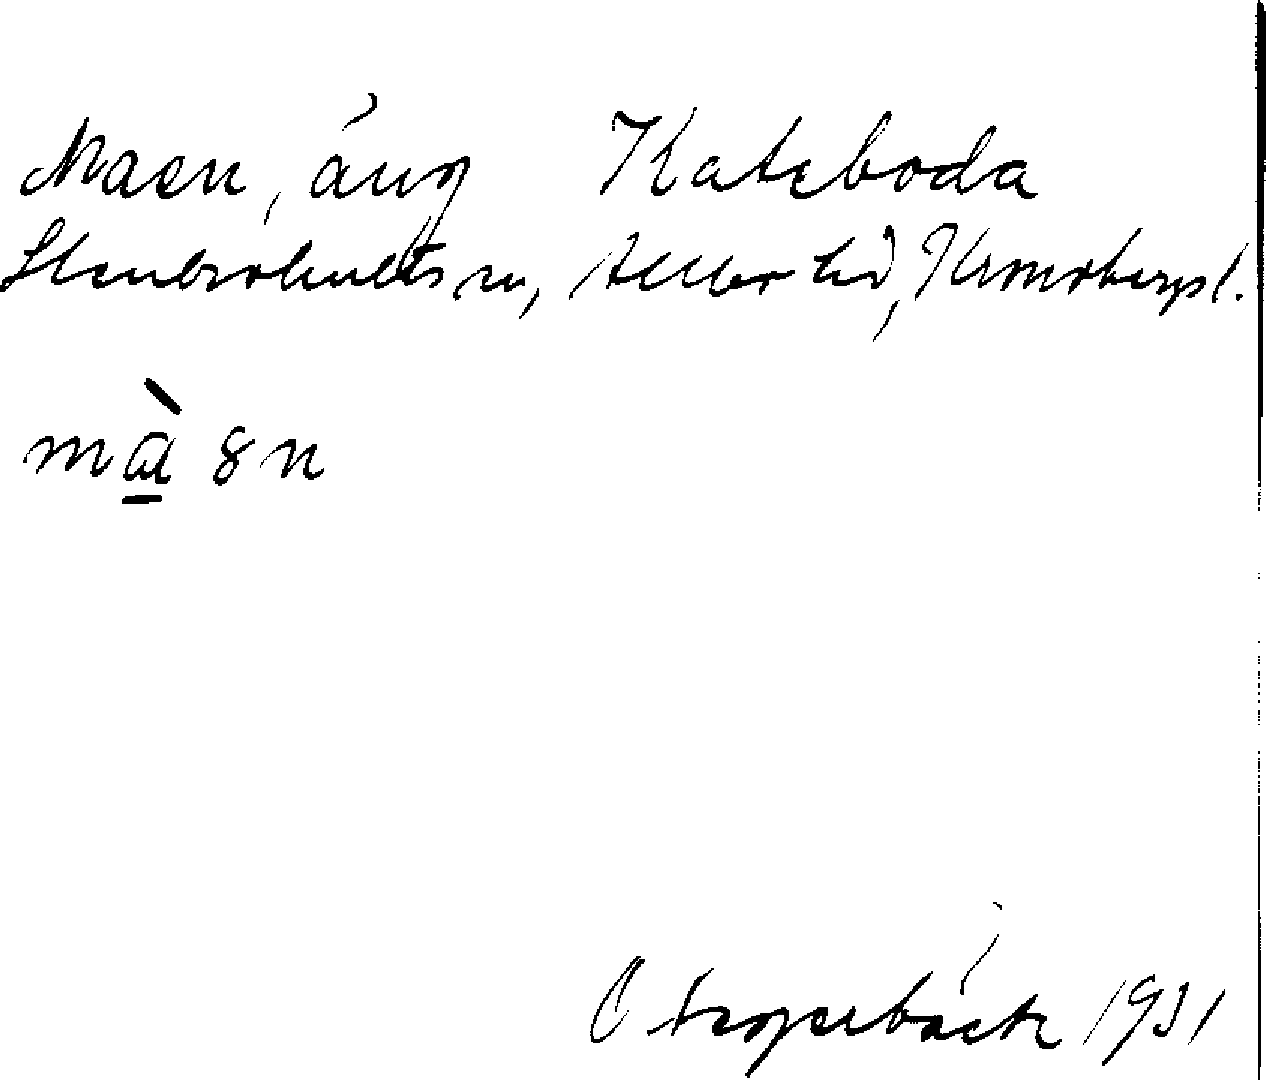 Maen, äng Kateboda
Stenbrohults sn, Allbo hd, Kronobergs l.
mà 8n
1931